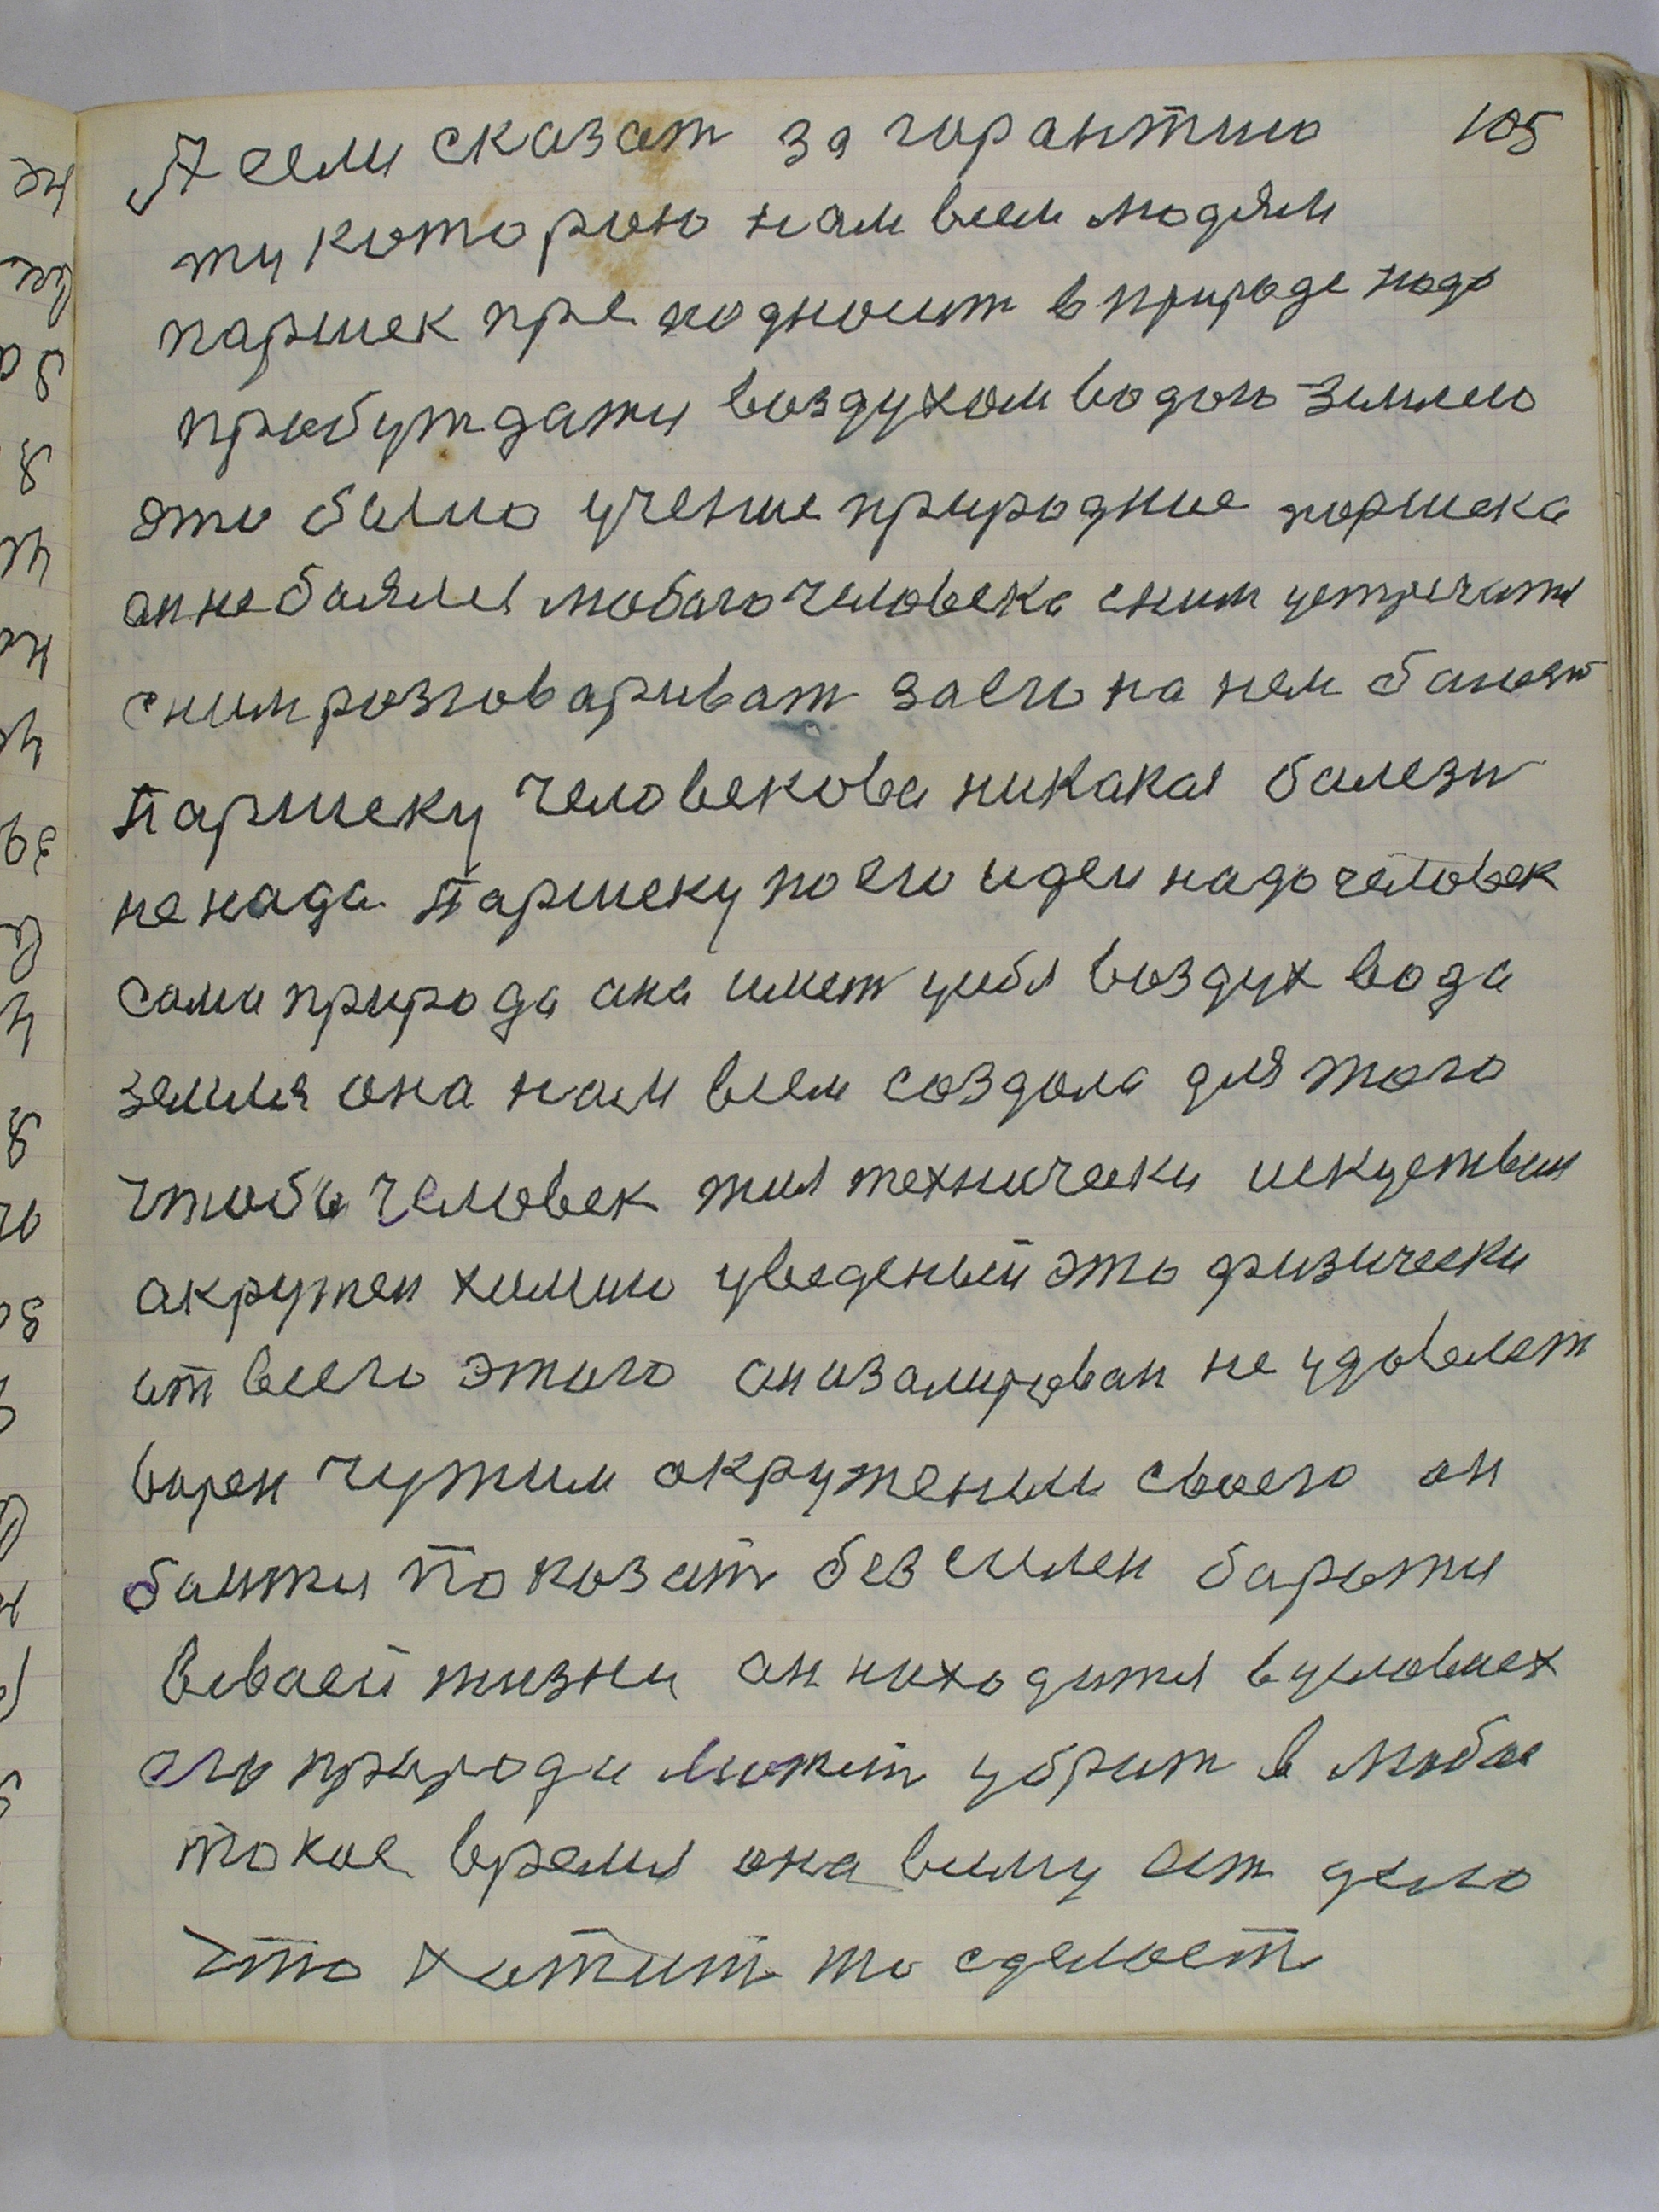 105
А если сказат за горантию
ту которою нам всем людям
паршек преподносит в природе надо
прабуждатся воздухом водою землею
это было учение природние паршека
ан не баялся любого человека сним устречатся
сним розговариват заего на нем балезн
Паршеку человекова никакая балезн
не нада. Паршеку по его идеи надо человек
сама природа ана имеет усебя воздух вода
земля она нам всем создала для того
чтобы человек жил технически искуствин
акружен химию уведеный это физически
ат всего этого ан изалирован не удавалет
варен чужим окружением своего ан
баится показат безсилен баротся
всваей жизни ан находится в условиех
его природа может убрит в любое
токое время она всилу ет дело
что хатит то сделает